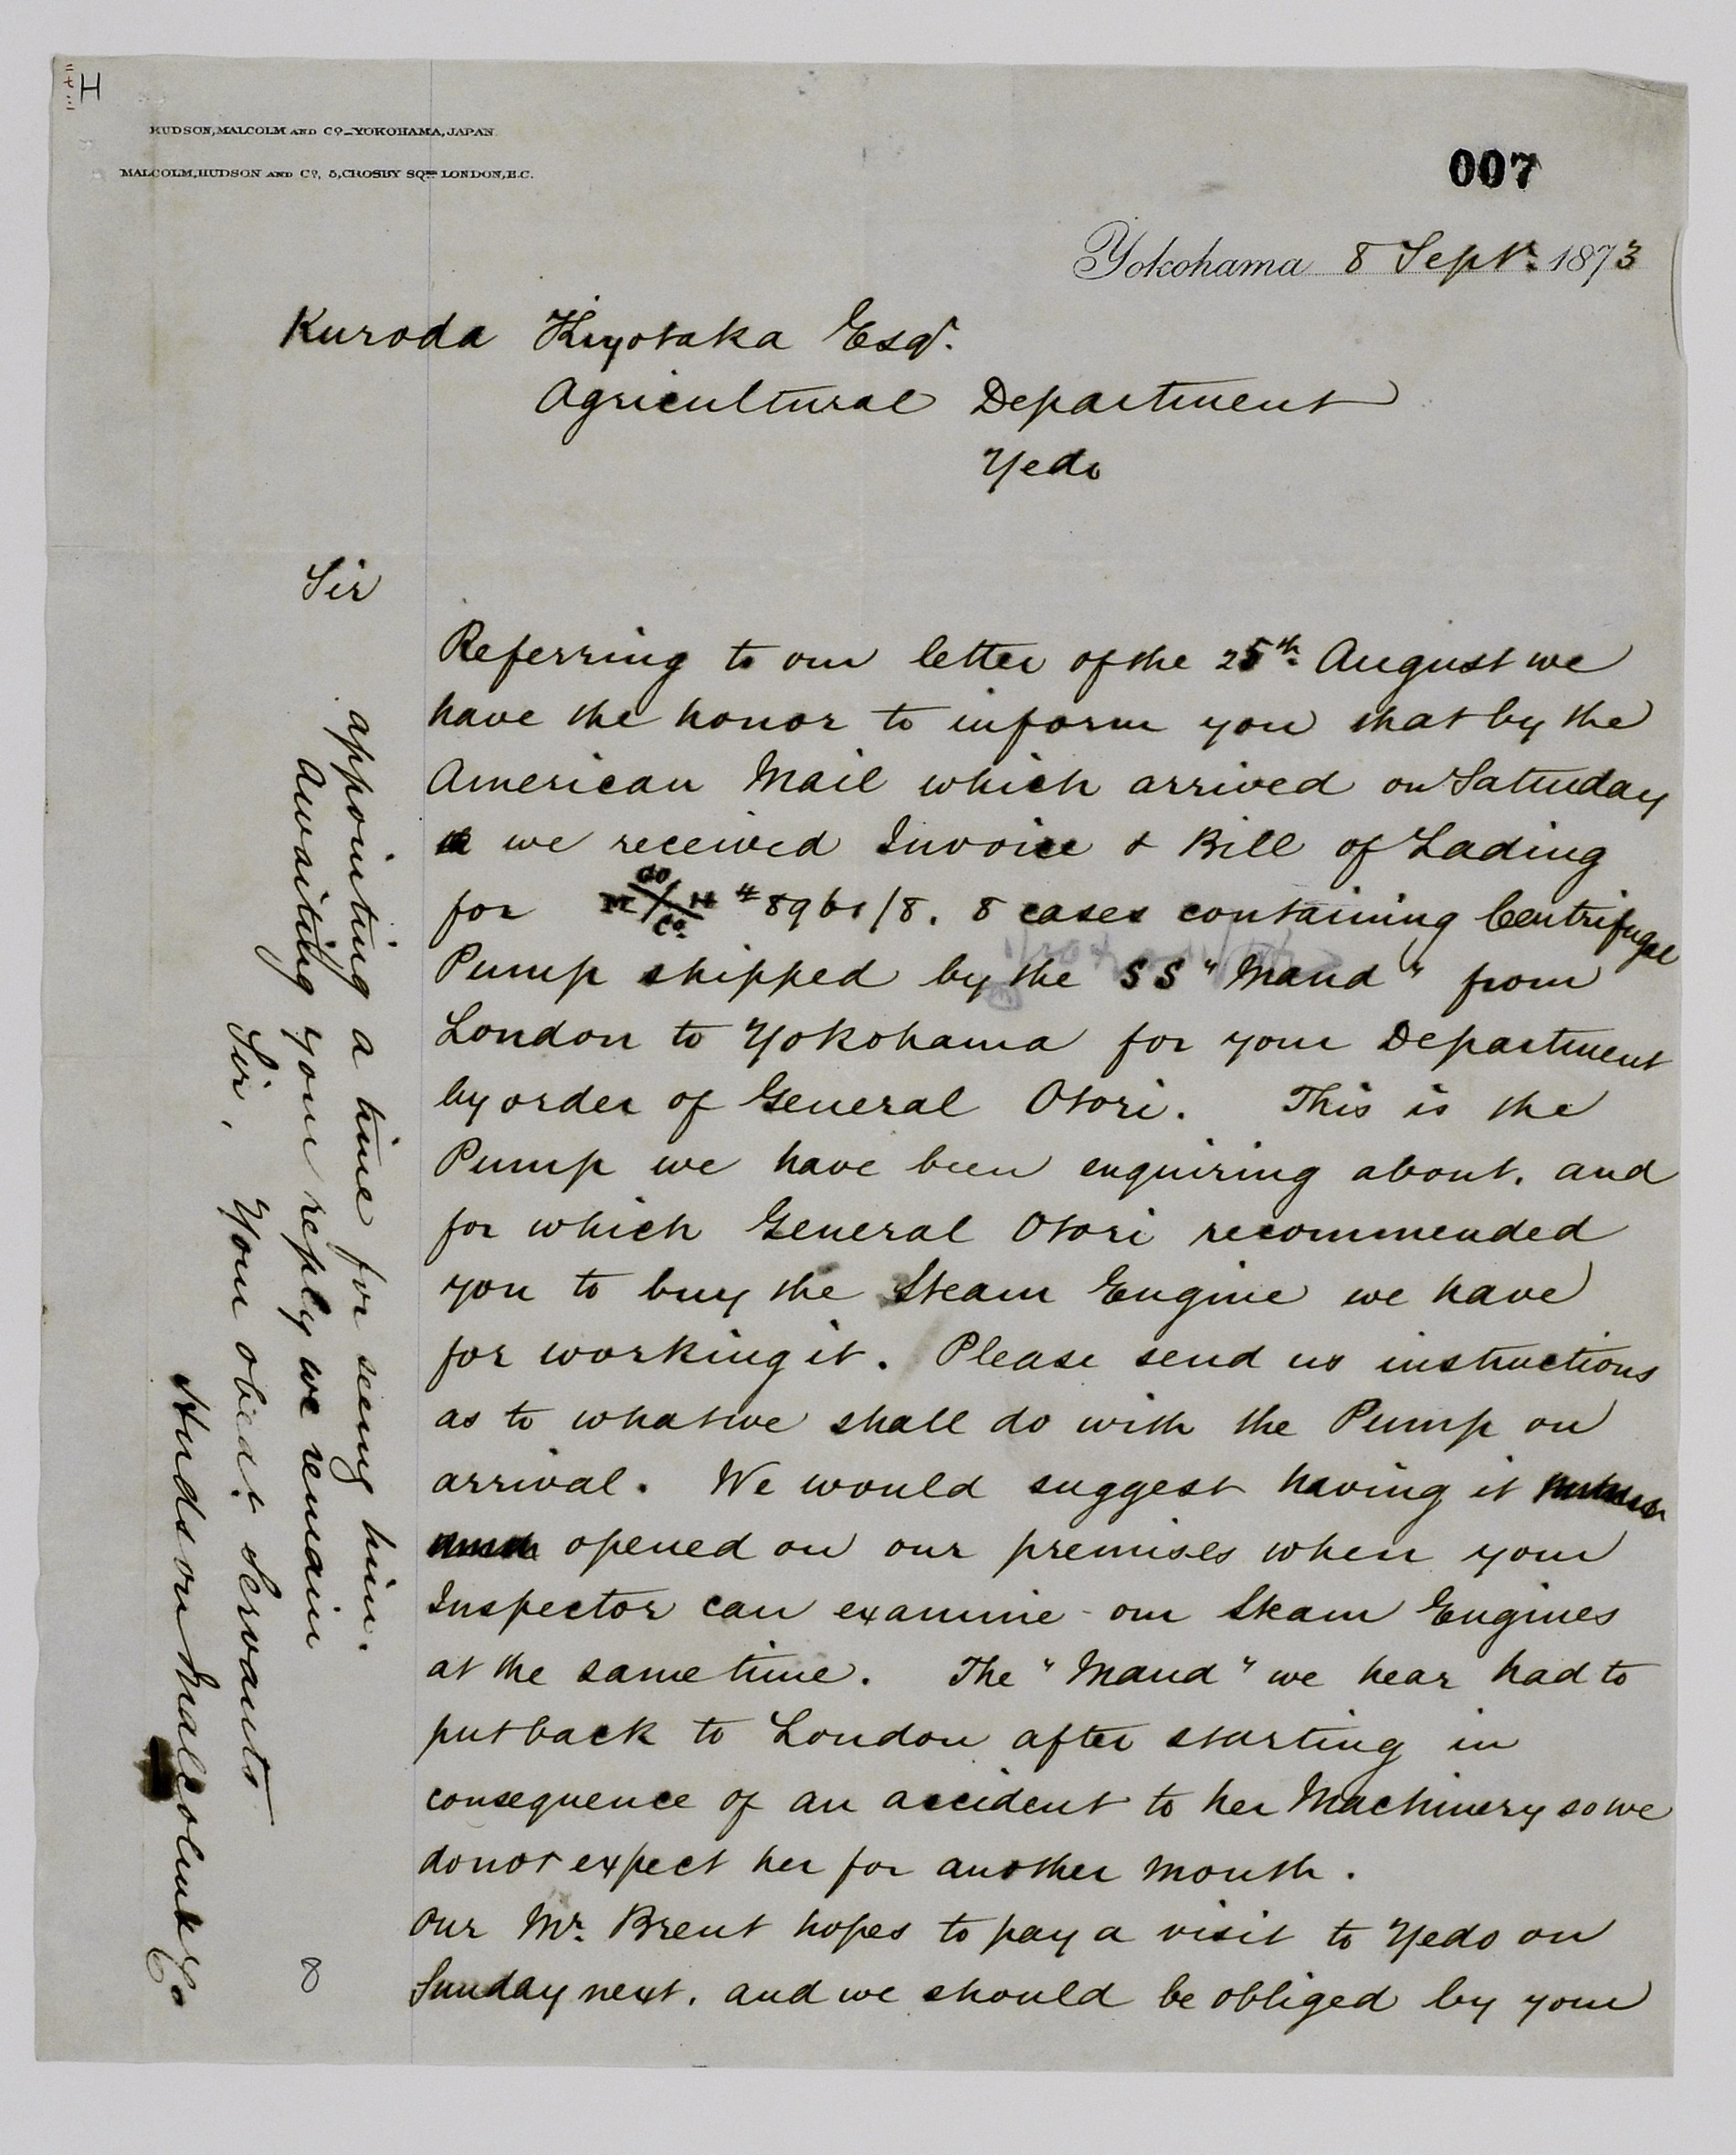 H
HUDSON, MALCOLM AND Co_YOKOHAMA, JAPAN.
MALCOLM, HUDSON AND Co, 5, CROSBY SQRE LONDON, E.C.
007
Yokohama 8 Septr. 1873
Kuroda Kiyotaka Esqr.
Agricultural Department
Yedo
Sir
Referring to our letter of the 25th August we
have the honor to inform you that by the
American Mail which arrived on Saturday
we received Invoice & Bill of Lading
for M Co H Co. #8961/8. 8 cases containing Centrifugal
Pump shipped by the SS "Maud" from
London to Yokohama for your Department
by order of General Otori. This is the
Pump we have been enquiring about, and
for which General Otori recommended
you to buy the Steam Engine we have
for working it. Please send us instructions
as to what we shall do with the Pump on
arrival. We would suggest having it
opened on our premises when your
Inspector can examine our Steam Engines
at the same time. The "Maud" we hear had to
put back to London after starting in
consequence of an accident to her Machinery so we
do not expect her for another month.
Our Mr. Brent hopes to pay a visit to Yedo on
Sunday next, and we should be obliged by your
appointing a time for seeing him.
Awaiting your reply we remain
Sir, Your obedt. Servants
Hudson Malcolm & Co
8